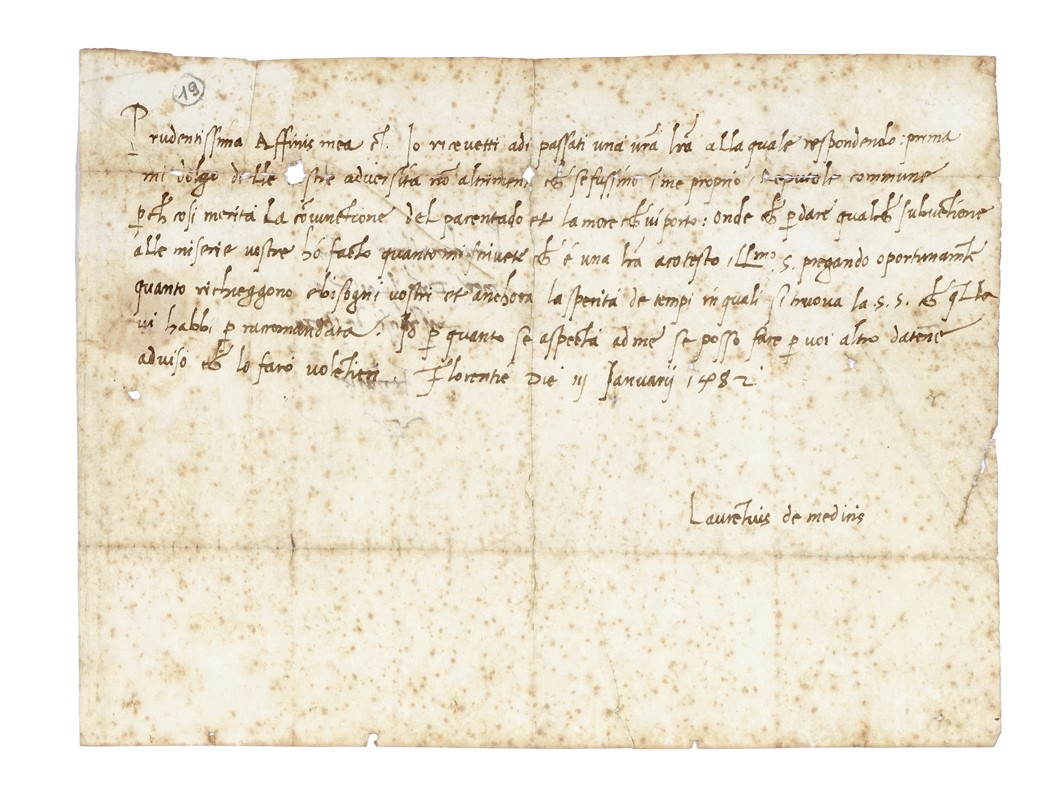 19
Prudentissima Affinis mea etc. Io ricevetti adi passati una vrã lrã alla quale respondendo: prima
mi dolgo delle vostre adversità nõ altrimenti chẽ se fussimo ĩ me proprio, commune
ꝑchẽ così merita la cõiunctione del parentado et lamore chẽ vi porto: onde chẽ ꝑ dare qualchẽ subventione
alle miserie vostre hò facto quanto mi scrivete chẽ è una lrã a cotesto Illmo. S. pregando oportunamẽte
quanto richieggono e bisogni vostri et anchora lasperità de tempi in quali si truova la S. S. chẽ qlla
vi habbi ꝑ racomandata. Io ꝑ quanto se aspecta ad me se posso fare ꝑ voi altro datene
adviso chẽ lo farò volẽtieri Florentie Die iij Januarij 1482
Laurẽtius de medicis